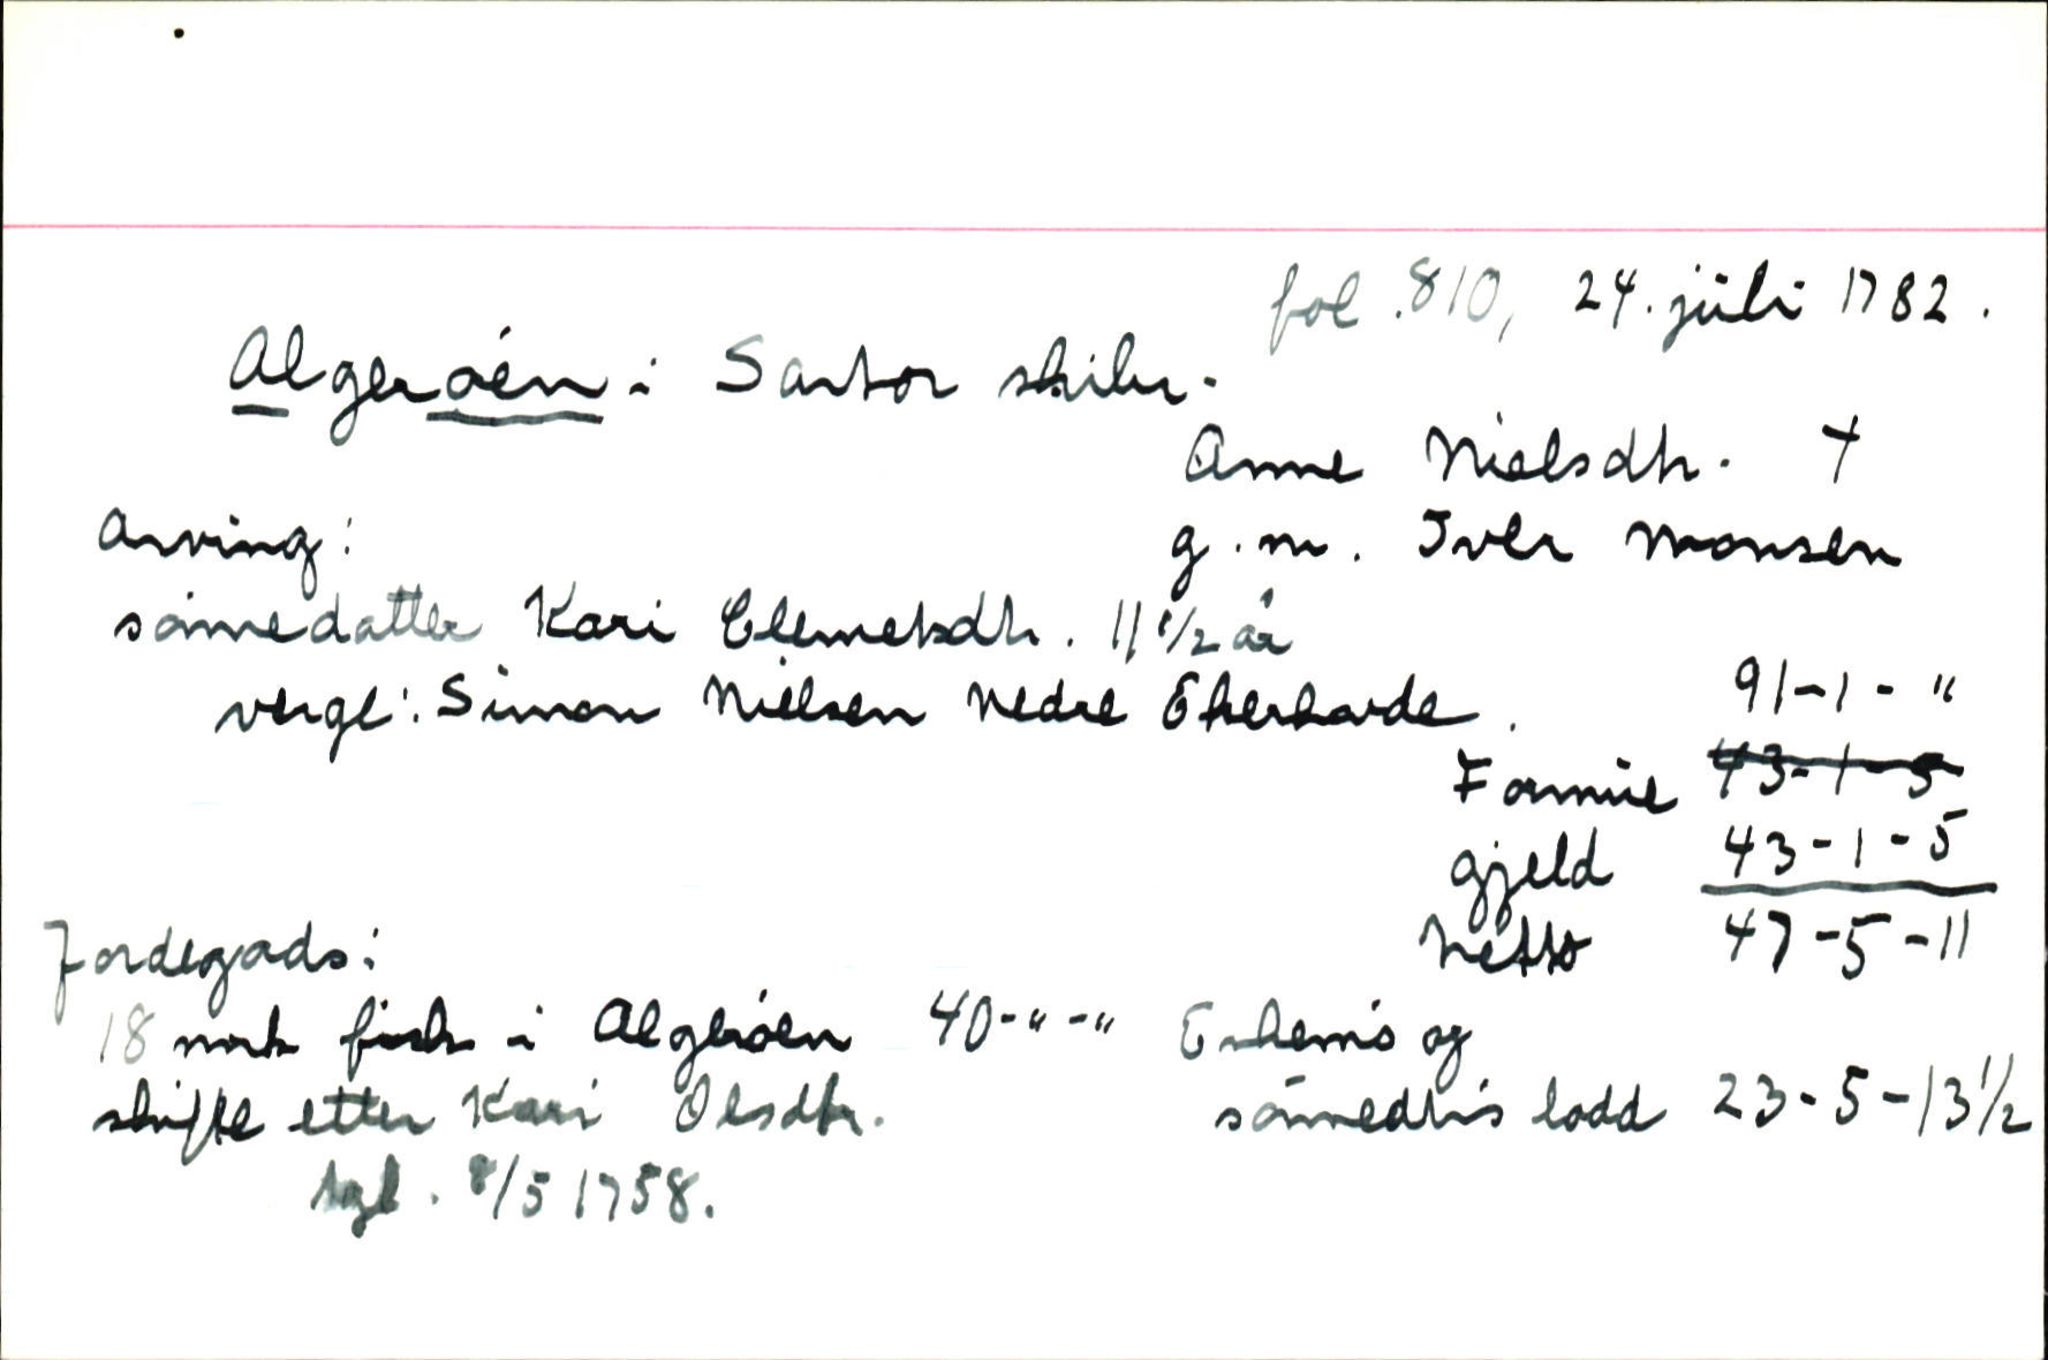 fol. 810, 24. juli 1782.
Algerøen i Sartor skibr.
Anne Nielsdtr. †
Arving:
g.m. Iver Monsen
sønnedatter Kari Clemetsdtr. 11 1/2 år
verge: Simon Nielsen Nedre Ekerhovde.
91-1-"
Formue 43-1-5
gjeld 43-1-5
Netto 47-5-11
Jordegods:
18 mrk fisk i Algerøen 40-"-"
Enkem's og
skifte etter Kari Olsdtr.
sønnedtr's lodd 23-5-13 1/2
tgl. 8/5 1758.